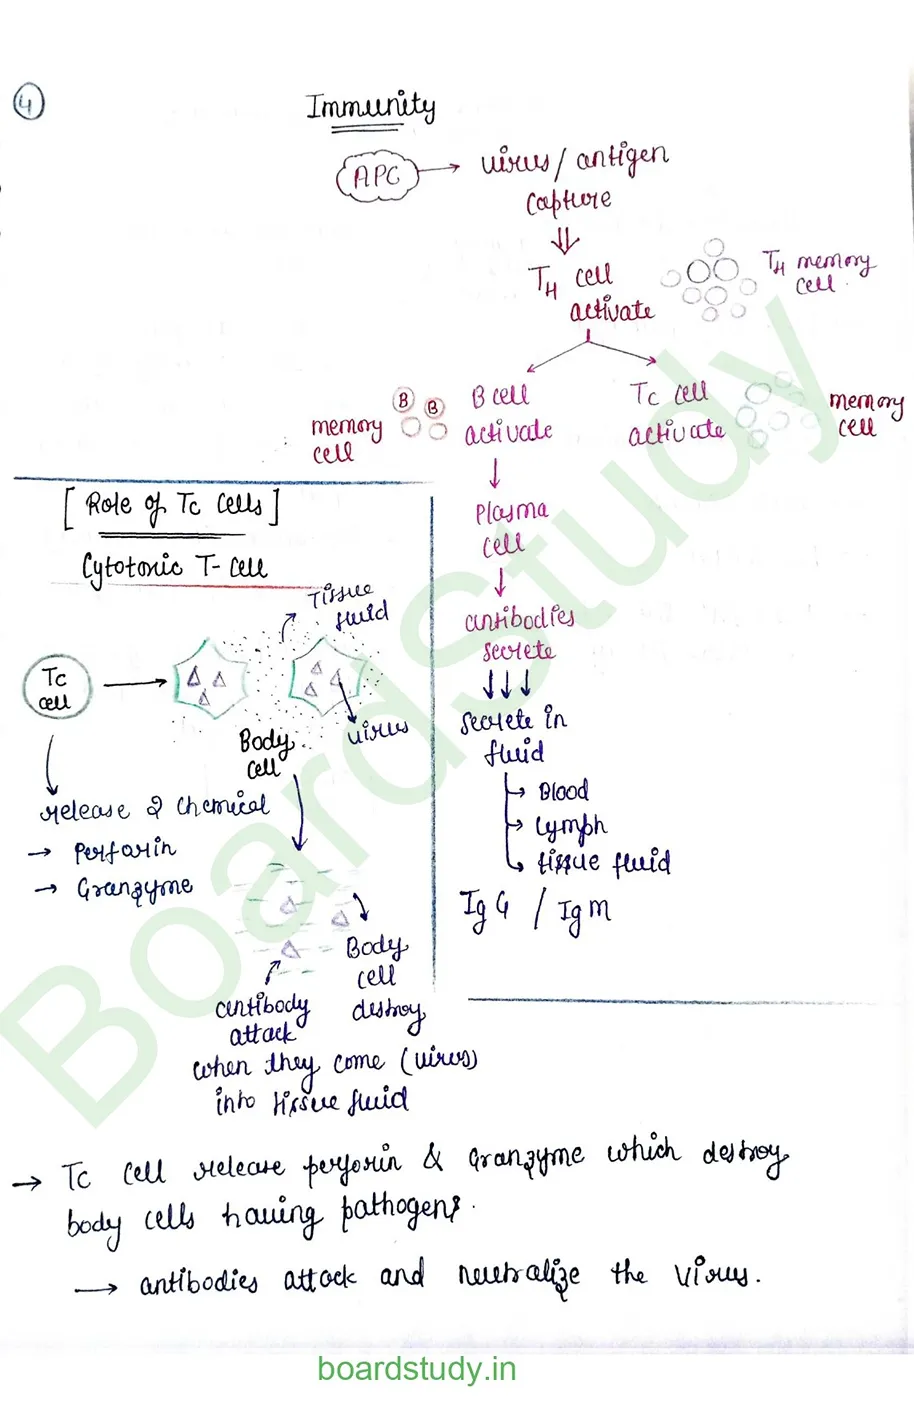 4
Immunity
APC → virus / antigen
capture
⇓
TH cell
activate
TH memory
cell.
B cell
activate
B B
memory
cell
Tc cell
activate
memory
cell
↓
Plasma
cell
↓
antibodies
secrete
↓↓↓
secrete in
fluid
→ Blood
→ Lymph
→ tissue fluid
IgG / IgM
[Role of Tc cells]
Cytotonic T-cell
Tissue
fluid
Tc
cell
virus
Body
cell
release 2 chemical
→ Perforin
→ Granzyme
Body
cell
destroy
antibody
attack
when they come (virus)
into tissue fluid
→ Tc cell release perforin & Granzyme which destroy
body cells having pathogens.
→ antibodies attack and neutralize the virus.
BoardStudy
boardstudy.in